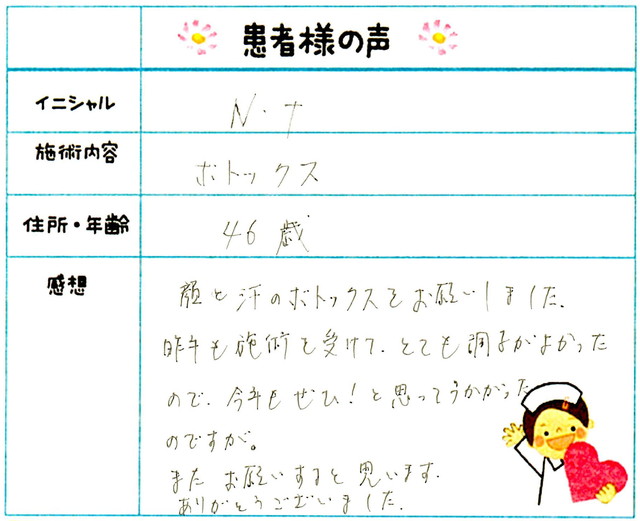 患者様の声
イニシャル
N.T
施術内容
ボトックス
住所・年齢
46歳
感想
顔と汗のボトックスをお願いしました。
昨年も施術を受けて、とても調子がよかった
ので、今年もぜひ!と思ってうかがった
のですが。
また お願いすると思います。
ありがとうございました。